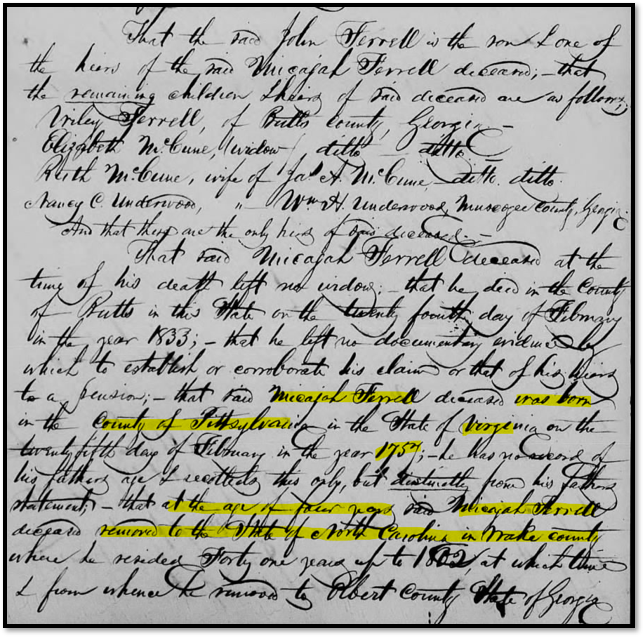 That the said John Ferrell is the son & one of
the heirs of the said Micajah Ferrell deceased; that
the remaining children & heirs of said deceased are as follows,
Wiley Ferrell, of Butts County, Georgia –
Elizabeth McCune, widow ditto – ditto –
Ruth McCune, wife of Jas. A. McCune – ditto. ditto.
Nancy C. Underwood, " – Wm. H. Underwood, Muscogee County, Georgia.
And that these are the only heirs of said deceased. –
That said Micajah Ferrell deceased at the
time of his death left no widow; that he died in the County
of Butts in this State on the twenty fourth day of February
in the year 1833; – that he left no documentary evidence by
which to establish or corroborate his claim or that of his heirs
to a pension; – that said Micajah Ferrell deceased was born
in the County of Pittsylvania in the State of Virginia on the
twenty fifth day of February in the year 1757; – he has no record of
his fathers age & recollects this only, but distinctly from his fathers
statement; – that at the age of four years said Micajah Ferrell
deceased removed to the State of North Carolina in Wake county
where he resided Forty one years up to 1802, at which time
& from whence he removed to Elbert County State of Georgia